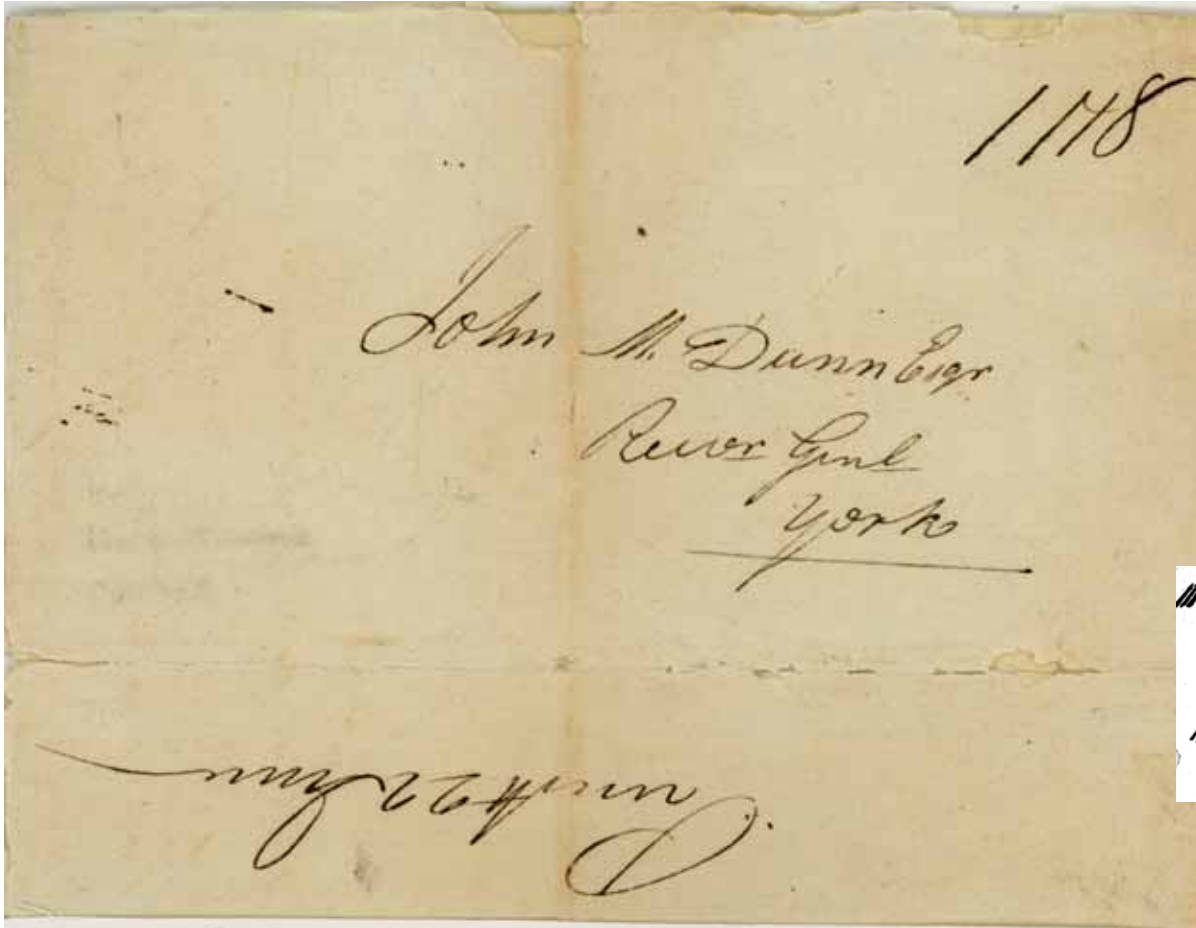 1148
John M. Dunn Esqr
Recvr Genl
York
22